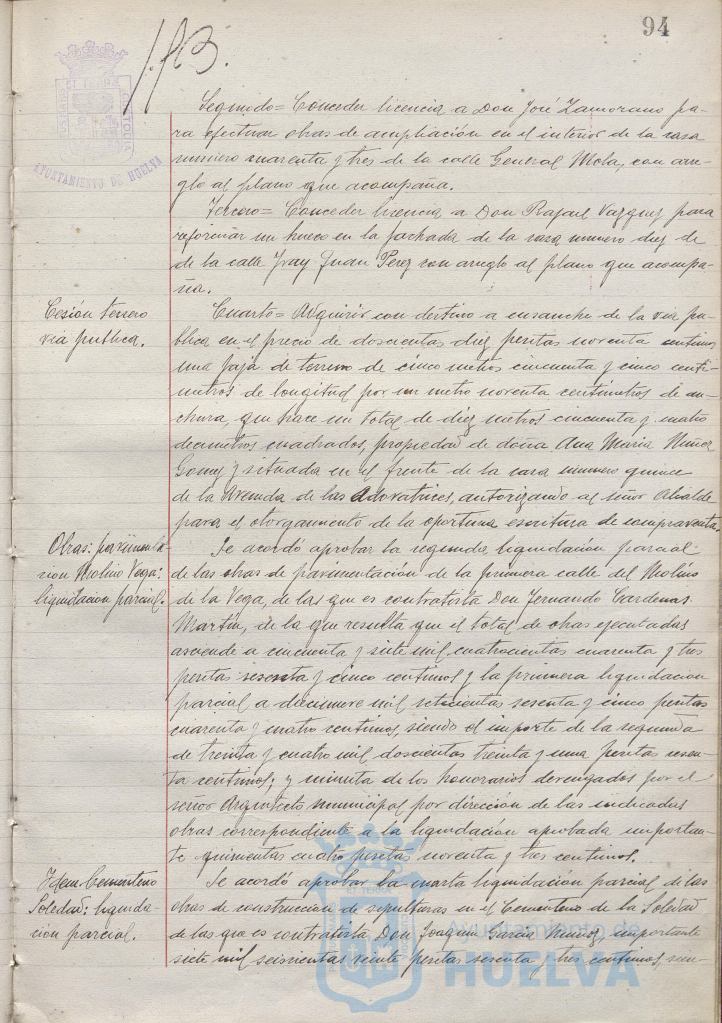 94
AYUNTAMIENTO DE HUELVA
Segundo= Conceder licencia a Don José Zamorano pa-
ra efectuar obras de ampliación en el interior de la casa
numero cuarenta y tres de la calle General Mola, con arre-
glo al plano que acompaña.
Tercero= Conceder licencia a Don Rafael Vazquez para
reformar un hueco en la fachada de la casa numero diez de
de la calle Fray Juan Perez con arreglo al plano que acompa-
ña.
Cesión terreno
via publica.
Cuarto= Adquirir con destino a ensanche de la via pu-
blica en el precio de doscientas diez pesetas noventa centimos
una faja de terreno de cinco metros cincuenta y cinco centi-
metros de longitud por un metro noventa centimetros de an-
chura, que hace un total de diez metros cincuenta y cuatro
decimetros cuadrados, propiedad de doña Ana Maria Nuñez
Gomez y situada en el frente de la casa numero quince
de la Avenida de las Adoratrices, autorizando al señor Alcalde
para el otorgamiento de la oportuna escritura de compraventa.
Obras: pavimenta-
cion Molino Vega:
liquidacion parcial.
Se acordó aprobar la segunda liquidación parcial
de las obras de pavimentación de la primera calle del Molino
de la Vega, de las que es contratista Don Fernando Cardenas
Martín, de la que resulta que el total de obras ejecutadas
asciende a cincuenta y siete mil cuatrocientas cuarenta y tres
pesetas sesenta y cinco centimos y la primera liquidacion
parcial a diecinueve mil setecientas sesenta y cinco pesetas
cuarenta y cuatro centimos, siendo el importe de la segunda
de treinta y cuatro mil doscientas treinta y una pesetas
centimos; y minuta de los honorarios devengados por el
señor Arquitecto municipal por dirección de las indicadas
obras correspondiente a la liquidación aprobada importan-
te quinientas cuatro pesetas noventa y tres centimos.
Idem Cementerio
Soledad: liquida-
cion parcial.
Se acordó aprobar la cuarta liquidación parcial de las
obras de construcción de sepulturas en el Cementerio de la Soledad
de las que es contratista Don Joaquin Garcia importante
siete mil seiscientas veinte pesetas sesenta y tres centimos,
Ayuntamiento de
HUELVA